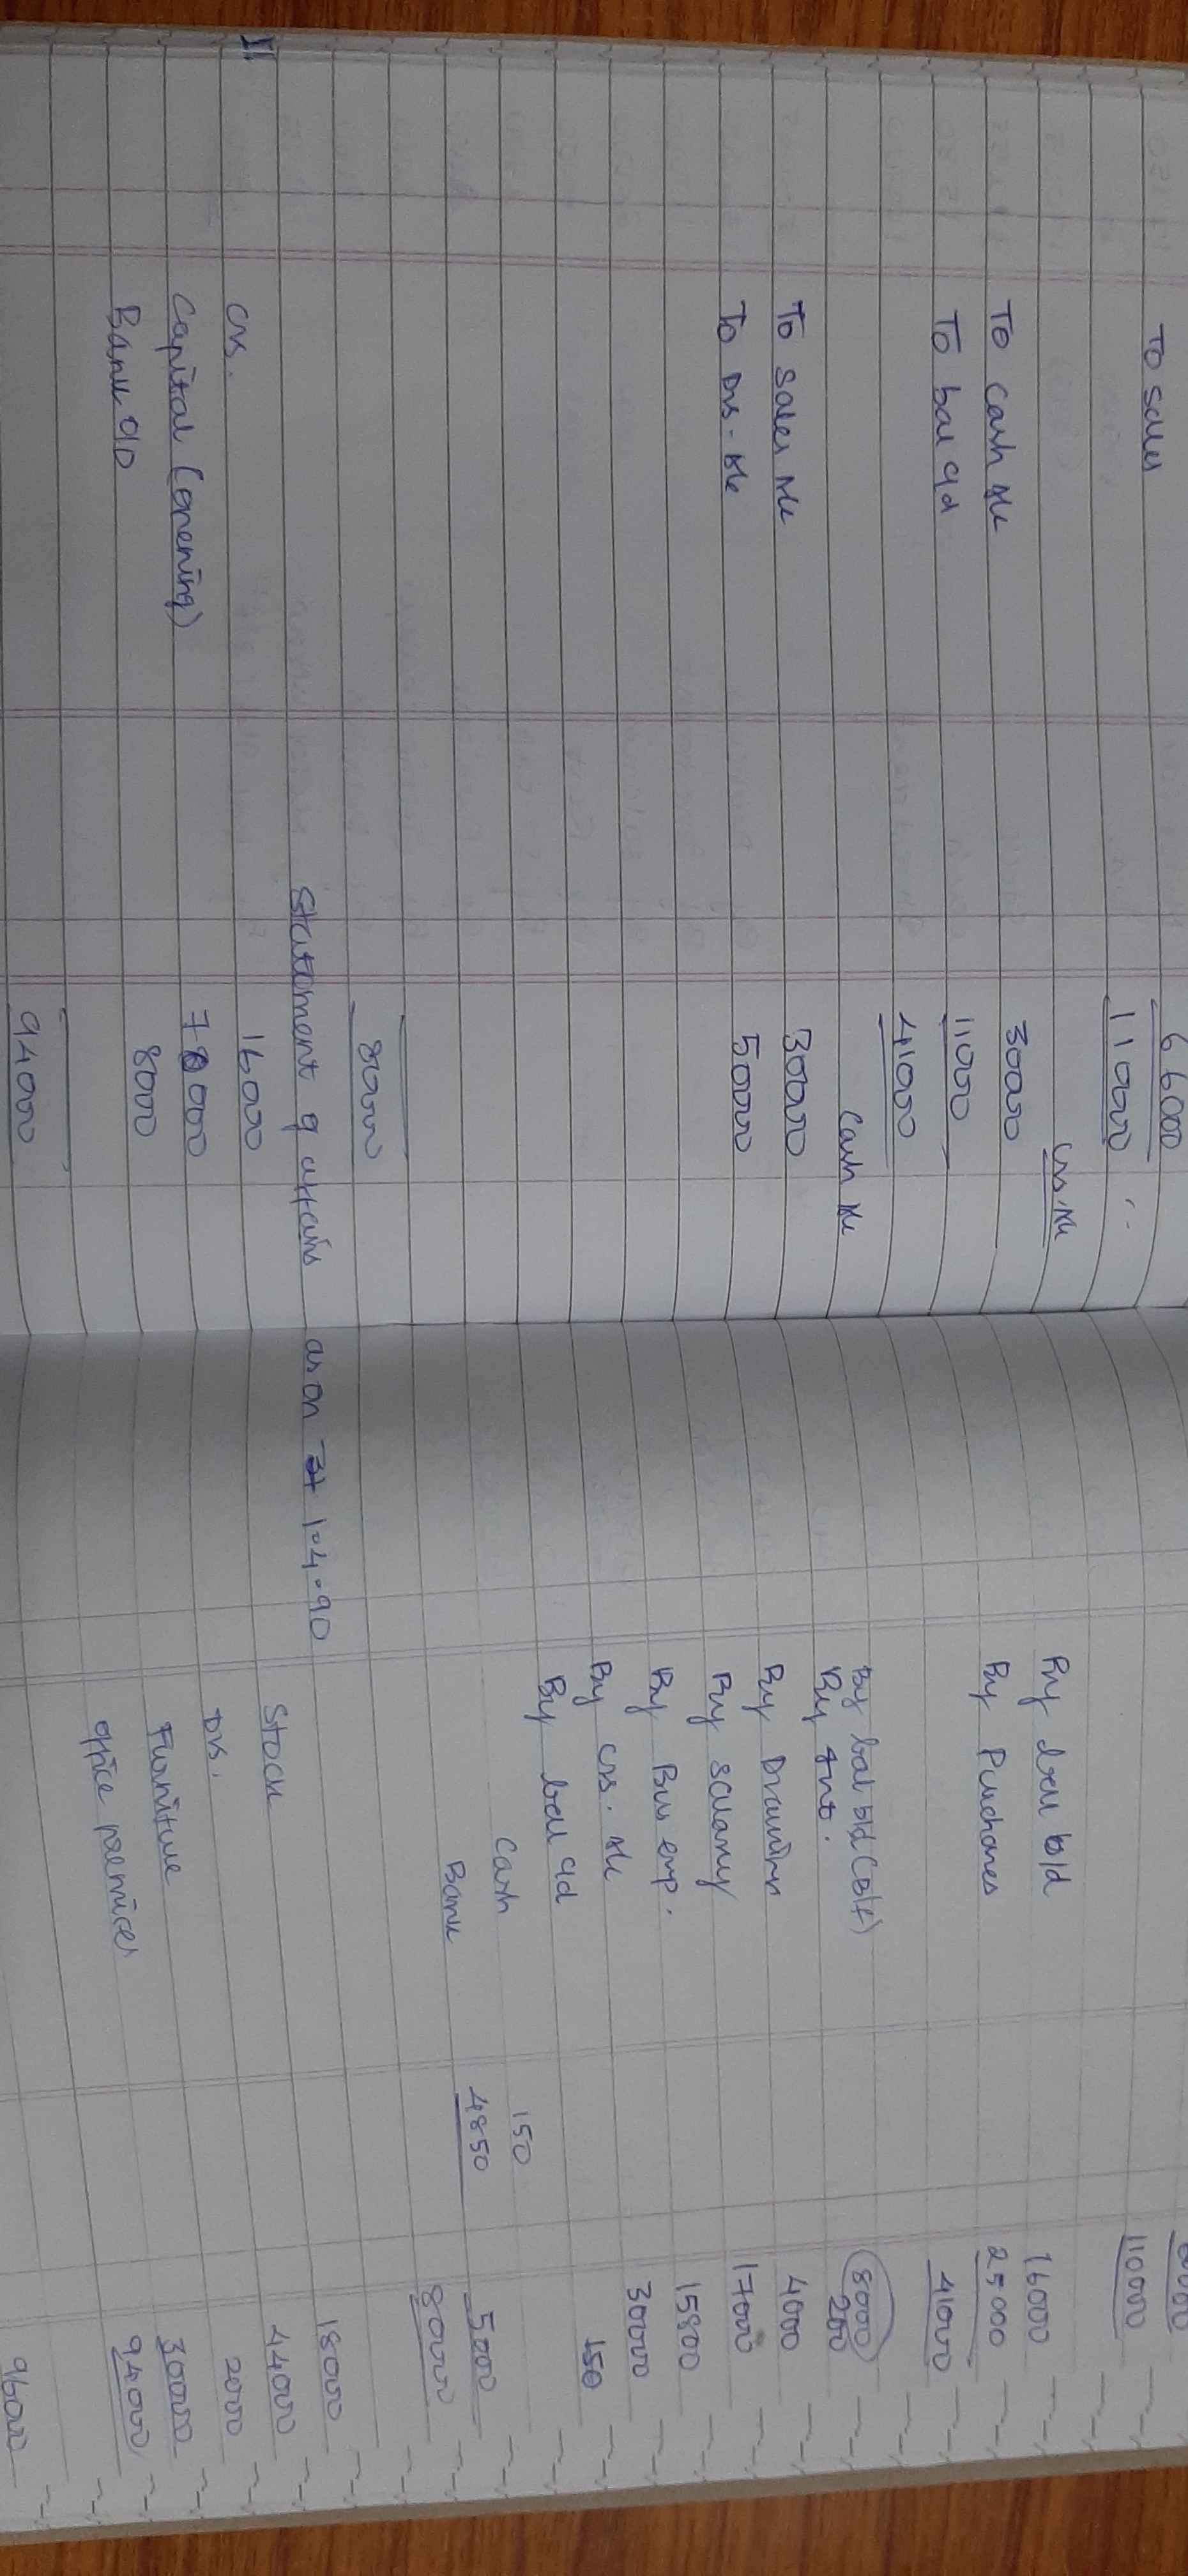 66000
To sales 110000 110000
Crs. A/c
To cash A/c 30000 By bal b/d 16000
To bal c/d 11000 By Purchases 25000
41000 41000
Cash A/c
To sales A/c 30000 By bal b/d (Bal f) 8000
To Drs. A/c 50000 By Int. 200
By Drawings 4000
By salary 17000
By Bus exp. 15800
By crs. A/c 30000
By bal c/d 150
Cash 150
Bank 4850 5000
80000 80000
II Statement of affairs as on 31 1-4-90
Crs. 16000 Stock 18000
Capital (opening) 70000 Drs. 44000
Bank OD 8000 Furniture 2000
office premises 30000
94000
94000 96000